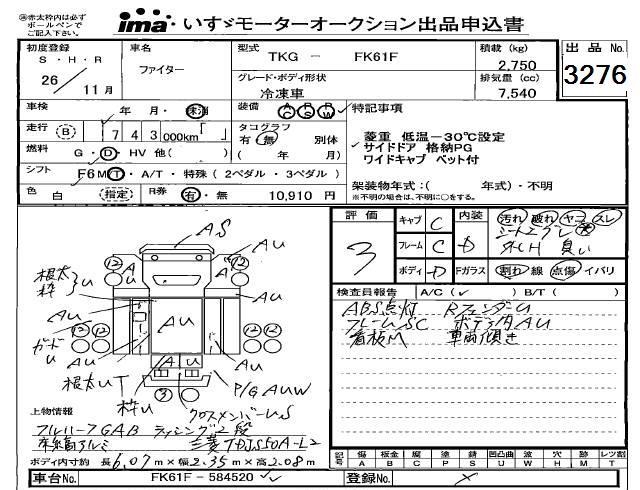 ※赤太枠内は必ず
ボールペンで
ご記入下さい。
ima いすゞモーターオークション出品申込書
初度登録 車名 型式 TKG － FK61F 積載 (kg) 2,750 出品No.
S・H・R 26 11月 ファイター グレード・ボディ形状 冷凍車 排気量 (cc) 7,540 3276
車検 年 月・抹消 装備 AC PS PW 特記事項
走行 (B) 743 000km「 」 タコグラフ 有 無 別体 菱重 低温－30℃設定
燃料 G・D・HV 他( ) ( 年 月) サイドドア 格納PG
シフト F6MT・A/T・特殊(2ペダル・3ペダル) ワイドキャブ ベット付
色 白 (指定) R券 有・無 10,910 円 架装物年式:( 年式)・不明
※不明の場合は、不明に○をする。
評価 3 キャブ C 内装 D 汚れ 破れ ヤコ スレ
フレーム C シートエグレ
ボディ D Fガラス 割れ 線 点傷 イバリ
外CH 臭い
検査員報告 A/C(✓) B/T( )
ABS点灯 RフェンダU
フレームSC ボデー内AU
看板M 車両傾き
AS
AU
A U
⑫ ⑫
根太 枠 U
AU AU AU
ガード U
⑫ ⑫
AU A U AU
根太UT
枠U ③ P/G AUW
クロスメンバーUS
上物情報
フルハーフGAB ラッシング2段
床縞高アルミ 三菱TDJS50A-L2
ボディ内寸約 長6.07m×幅2.35m×高2.08m
記号 傷 A 板金 B 腐 C 塗 P 錆 S 凹凸曲 U 波 W 穴 H 跡 M レツ割 T
車台No. FK61F－584520 登録No. ×